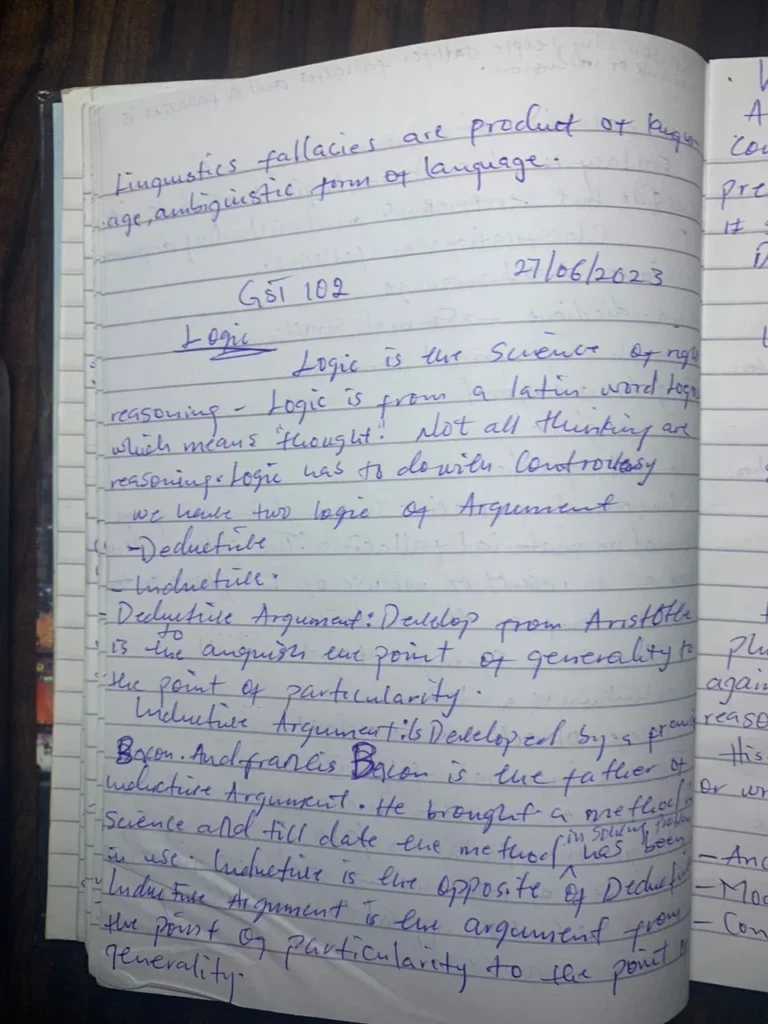 Linguistics fallacies are product of langu-
age, ambiguistic form of language.
GST 102 27/06/2023
Logic
Logic is the Science of right
reasoning - Logic is from a latin word Logos
which means "thought". Not all thinking are
reasoning. Logic has to do with Controversy
we have two logic of Argument
- Deductive
- Inductive.
= Deductive Argument: Develop from Aristotle
is to the anguish the point of generality to
the point of particularity.
Inductive Argument: is Developed by a
Bacon. And francis Bacon is the father of
inductive Argument. He brought a method in
Science and till date the method in solving problem has been
in use. Inductive is the opposite of Deductive
Inductive Argument is the argument from
the point of particularity to the point
generality.
A
pre
again
reaso
His
or
- Anc
- Mod
- Con